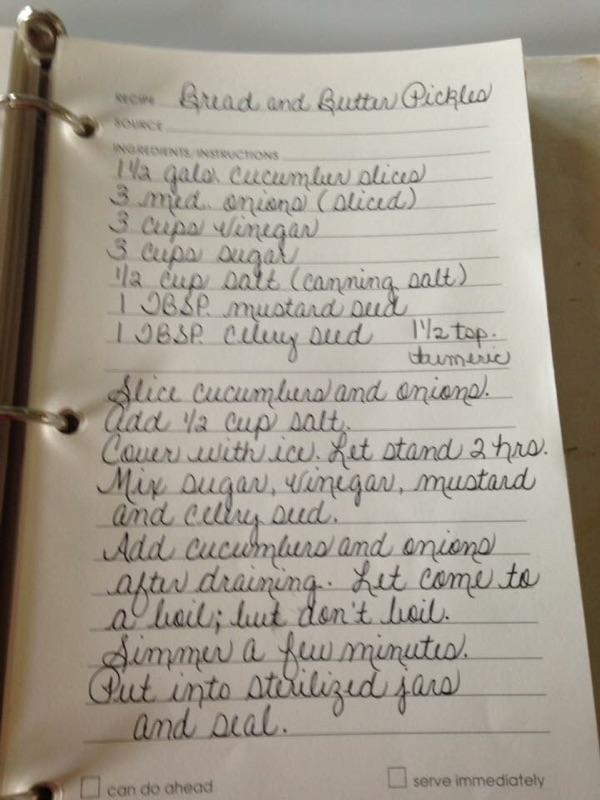 RECIPE Bread and Butter Pickles
SOURCE
INGREDIENTS/INSTRUCTIONS
1 1/2 gals. cucumber slices
3 med. onions (sliced)
3 cups vinegar
3 cups sugar
1/2 cup salt (canning salt)
1 TBSP. mustard seed
1 TBSP. celery seed 1 1/2 tsp.
tumeric
Slice cucumbers and onions.
Add 1/2 cup salt.
Cover with ice. Let stand 2 hrs.
Mix sugar, vinegar, mustard
and celery seed.
Add cucumbers and onions
after draining. Let come to
a boil; but don't boil.
Simmer a few minutes.
Put into sterilized jars
and seal.
can do ahead serve immediately